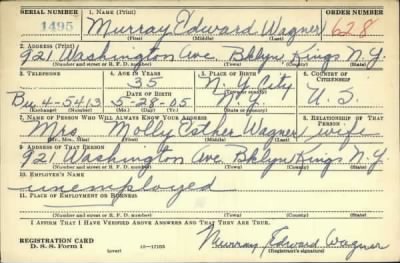 SERIAL NUMBER 1. NAME (Print) ORDER NUMBER
1495 Murray Edward Wagner 628
(First) (Middle) (Last)
2. ADDRESS (Print)
921 Washington Ave. Bklyn Kings N.Y.
(Number and street or R. F. D. number) (Town) (County) (State)
3. TELEPHONE 4. AGE IN YEARS 5. PLACE OF BIRTH 6. COUNTRY OF CITIZENSHIP
35 N.Y. City
DATE OF BIRTH (Town or county)
Bu 4-5413 5-28-05 N.Y. U.S.
(Exchange) (Number) (Mo.) (Day) (Yr.) (State or country)
7. NAME OF PERSON WHO WILL ALWAYS KNOW YOUR ADDRESS 8. RELATIONSHIP OF THAT PERSON
Mrs. Molly Esther Wagner wife
(Mr., Mrs., Miss) (First) (Middle) (Last)
9. ADDRESS OF THAT PERSON
921 Washington Ave. Bklyn Kings N.Y.
(Number and street or R. F. D. number) (Town) (County) (State)
10. EMPLOYER'S NAME
unemployed
11. PLACE OF EMPLOYMENT OR BUSINESS
(Number and street or R. F. D. number) (Town) (County) (State)
I AFFIRM THAT I HAVE VERIFIED ABOVE ANSWERS AND THAT THEY ARE TRUE.
REGISTRATION CARD
D. S. S. Form 1 (over) Murray Edward Wagner
(Registrant's signature)